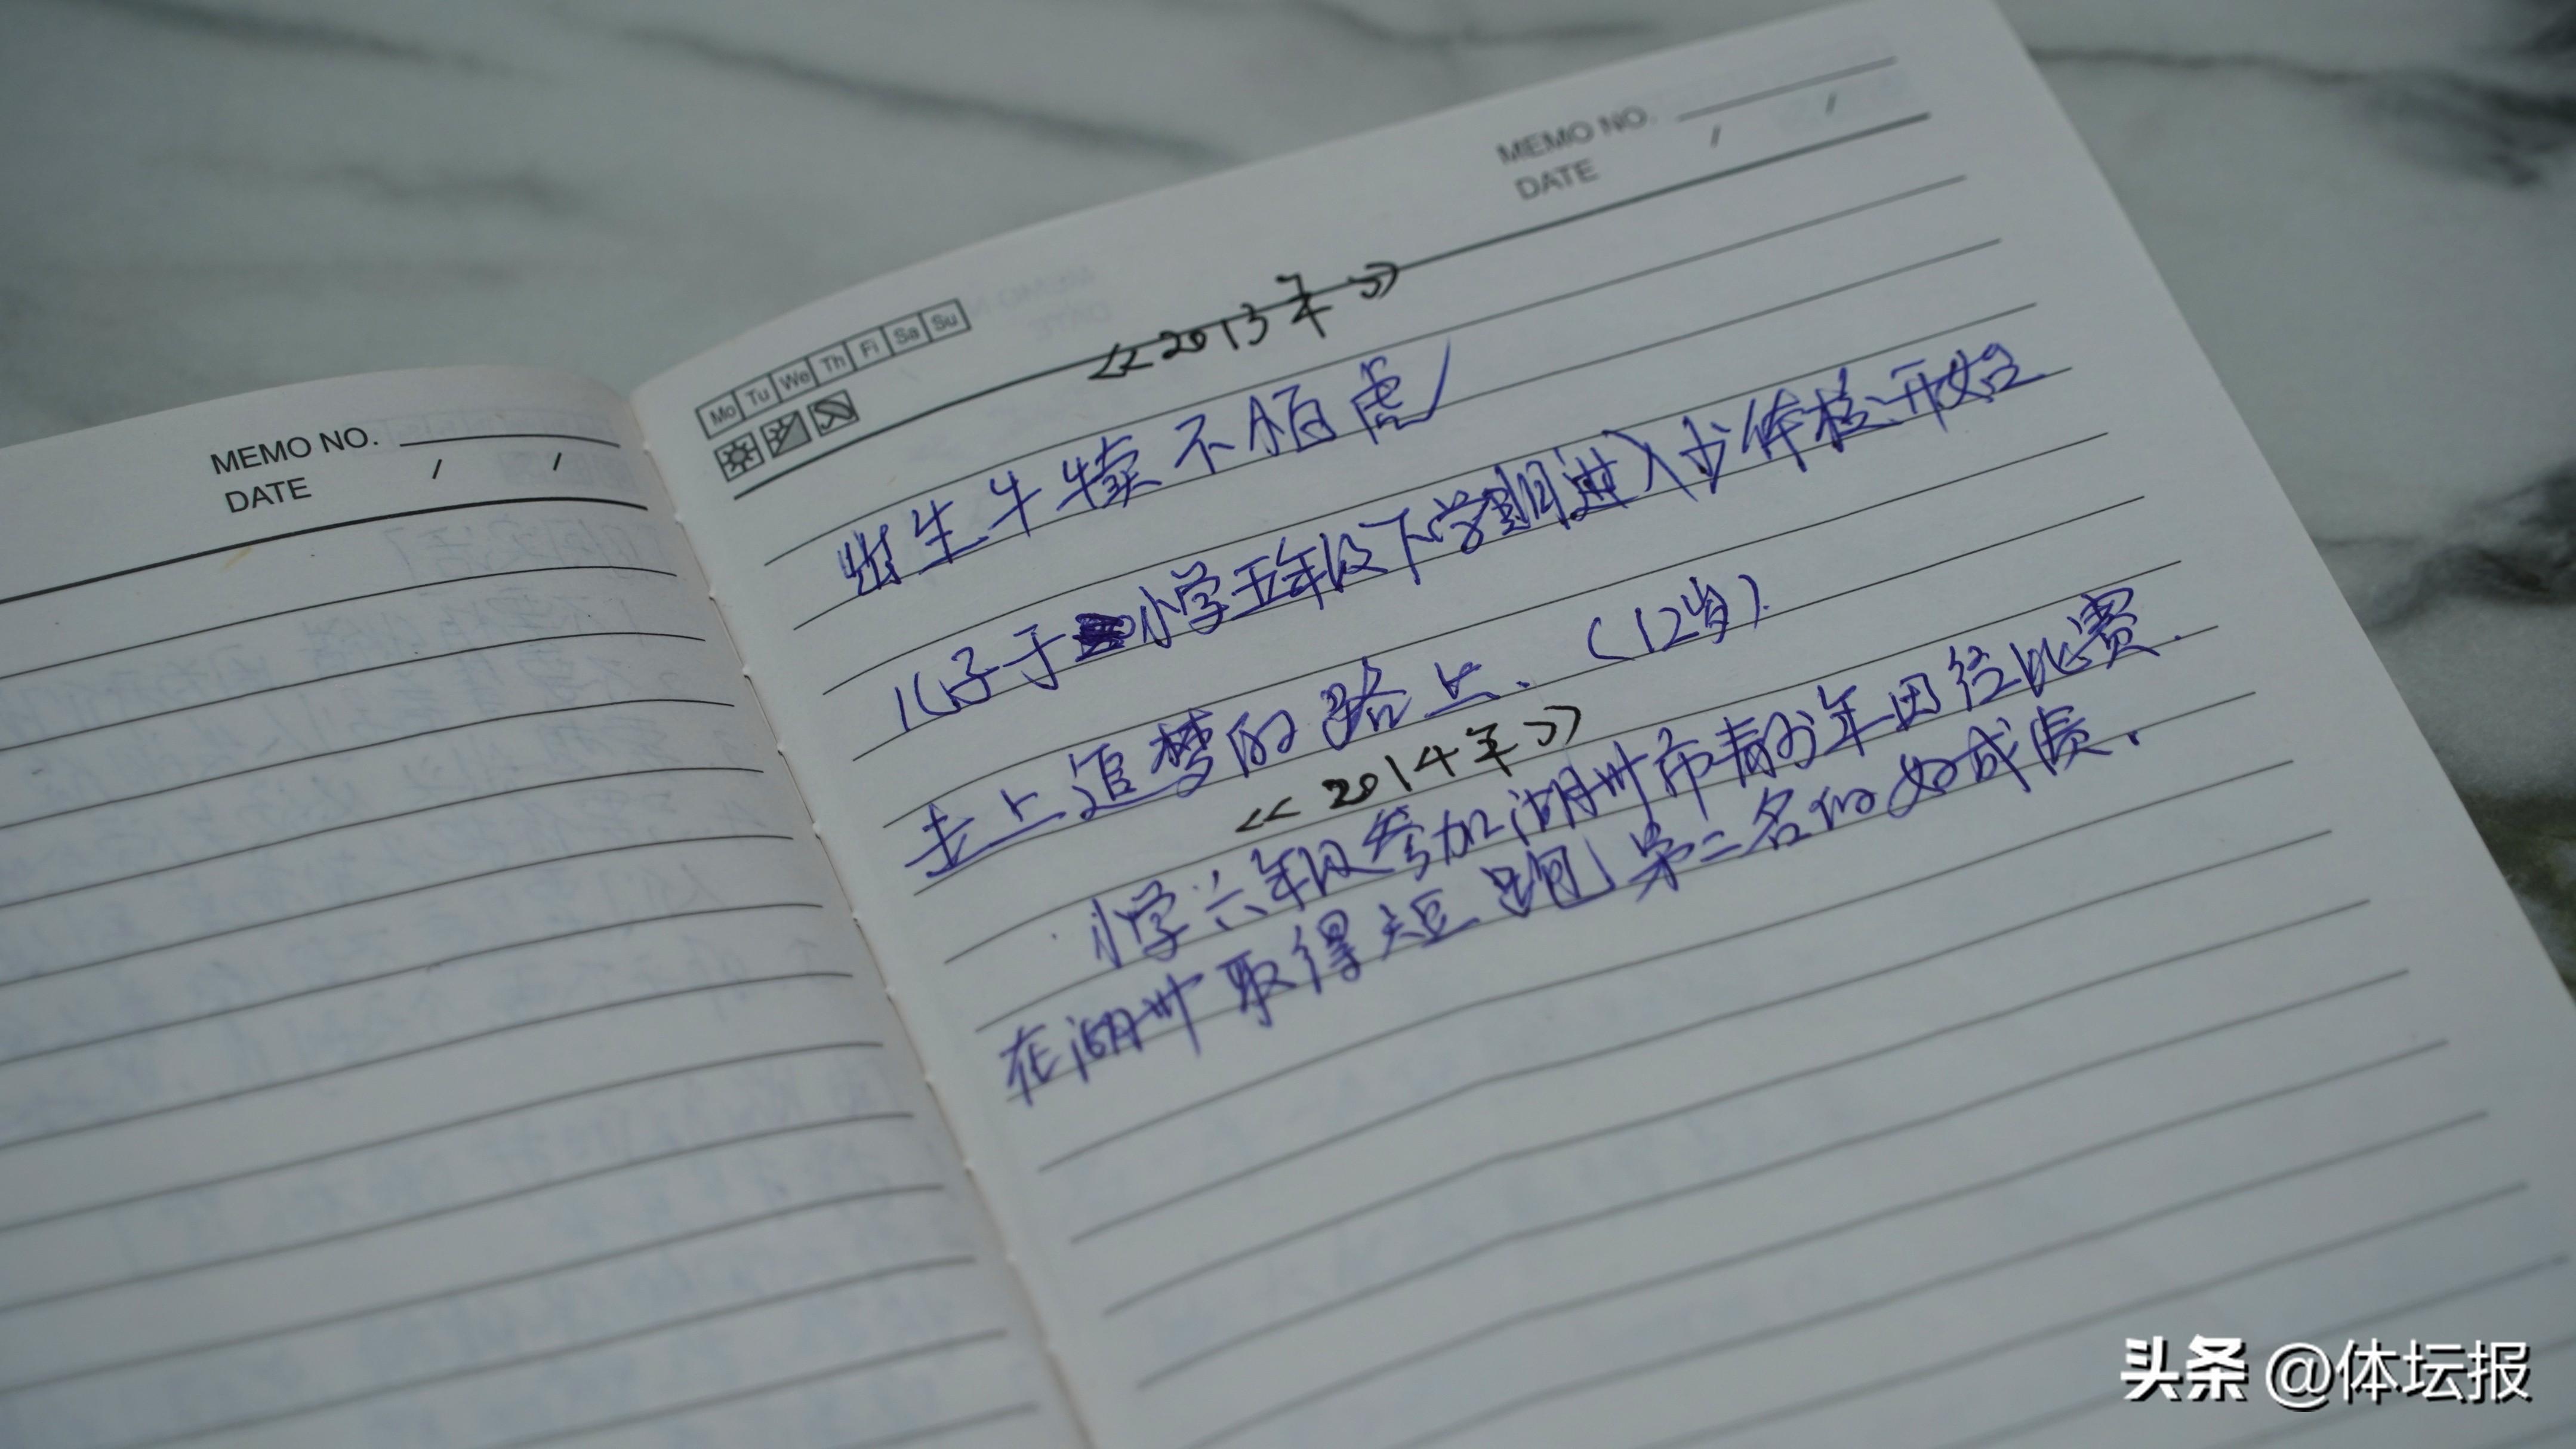 MEMO NO.
DATE / /
MEMO NO.
DATE / /
Mo Tu We Th Fi Sa Su
<<2013年>>
出生牛犊不怕虎
儿子于小学五年级下学期进入少体校开始
走上追梦的路上.(12岁).
<<2014年>>
小学六年级参加湖州市青少年田径比赛.
在湖州取得短跑第二名的好成绩.
头条 @体坛报